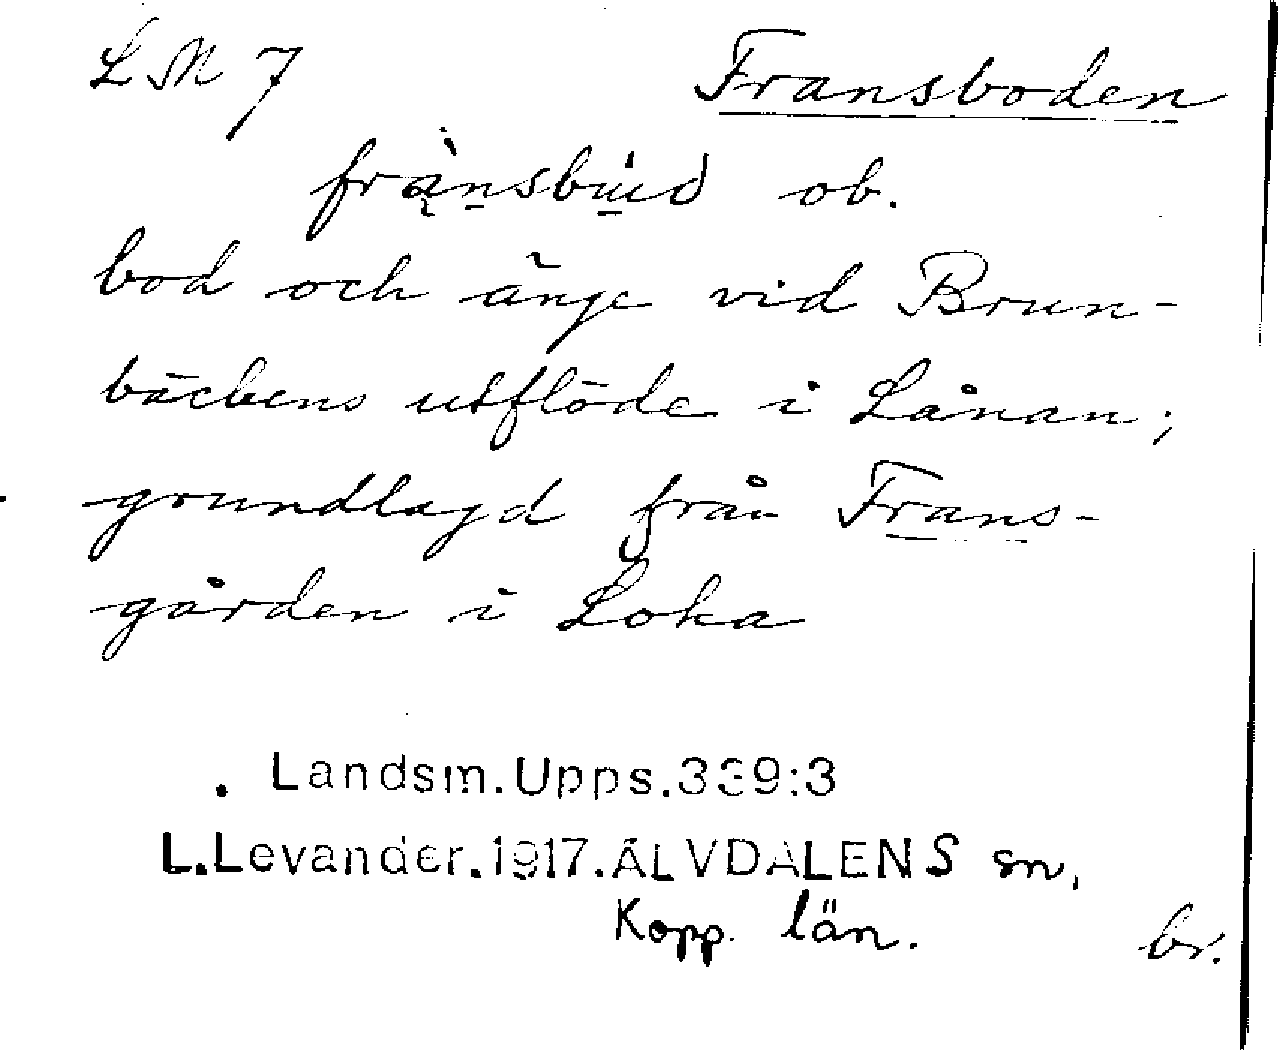 LM 7 Fransboden
frą̀nsbùd ob.
bod och änge vid Brun-
bäckens utflöde i Lånan;
grundlagd från Frans-
gården i Loka
Landsm.Upps.339:3
L.Levander.1917.ÄLVDALENS sn,
Kopp. län.
br.